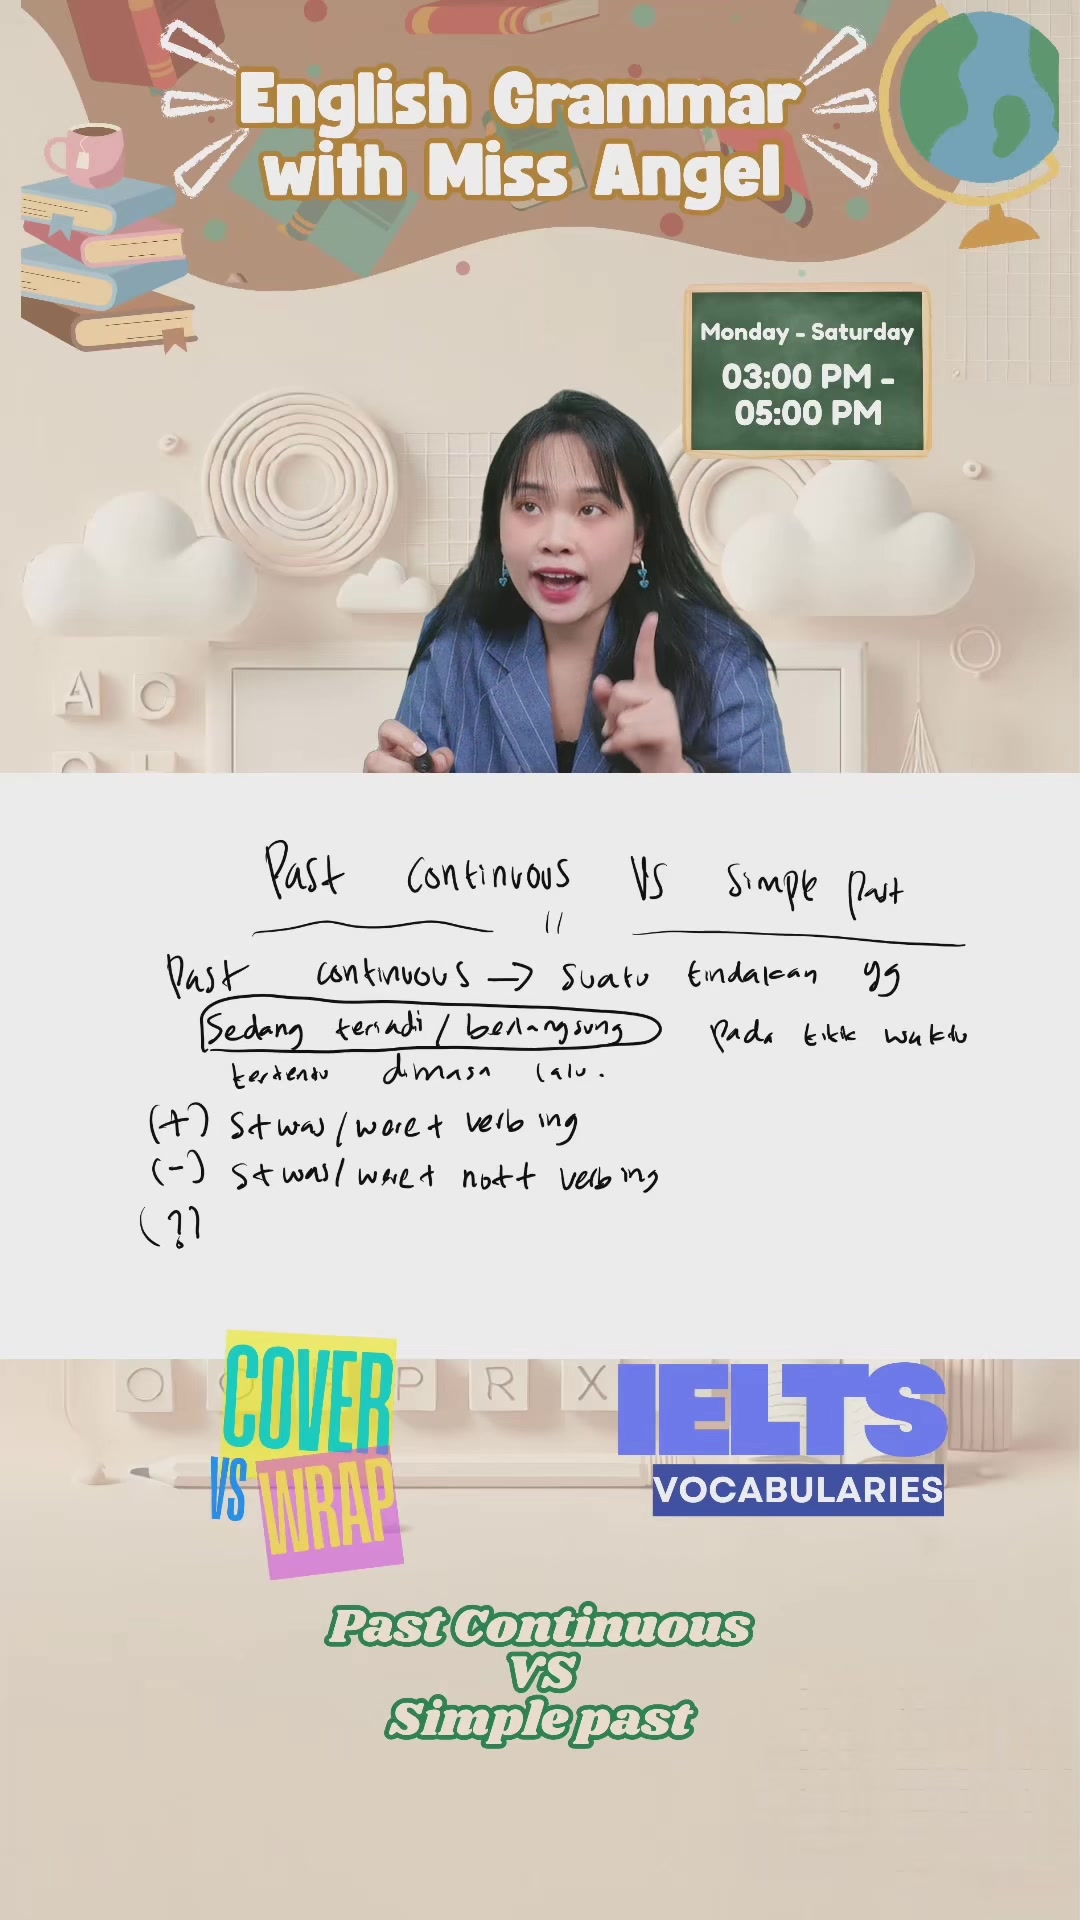 English Grammar
with Miss Angel
Monday - Saturday
03:00 PM -
05:00 PM
A C
Past continuous VS simple past
Past continuous → suatu tindakan yg
sedang terjadi / berlangsung pada titik waktu
tertentu dimasa lalu.
(+) S + was / were + verb ing
(-) S + was / were + not + verb ing
(?)
O P R X
COVER
VS WRAP
IELTS
VOCABULARIES
Past Continuous
VS
Simple past